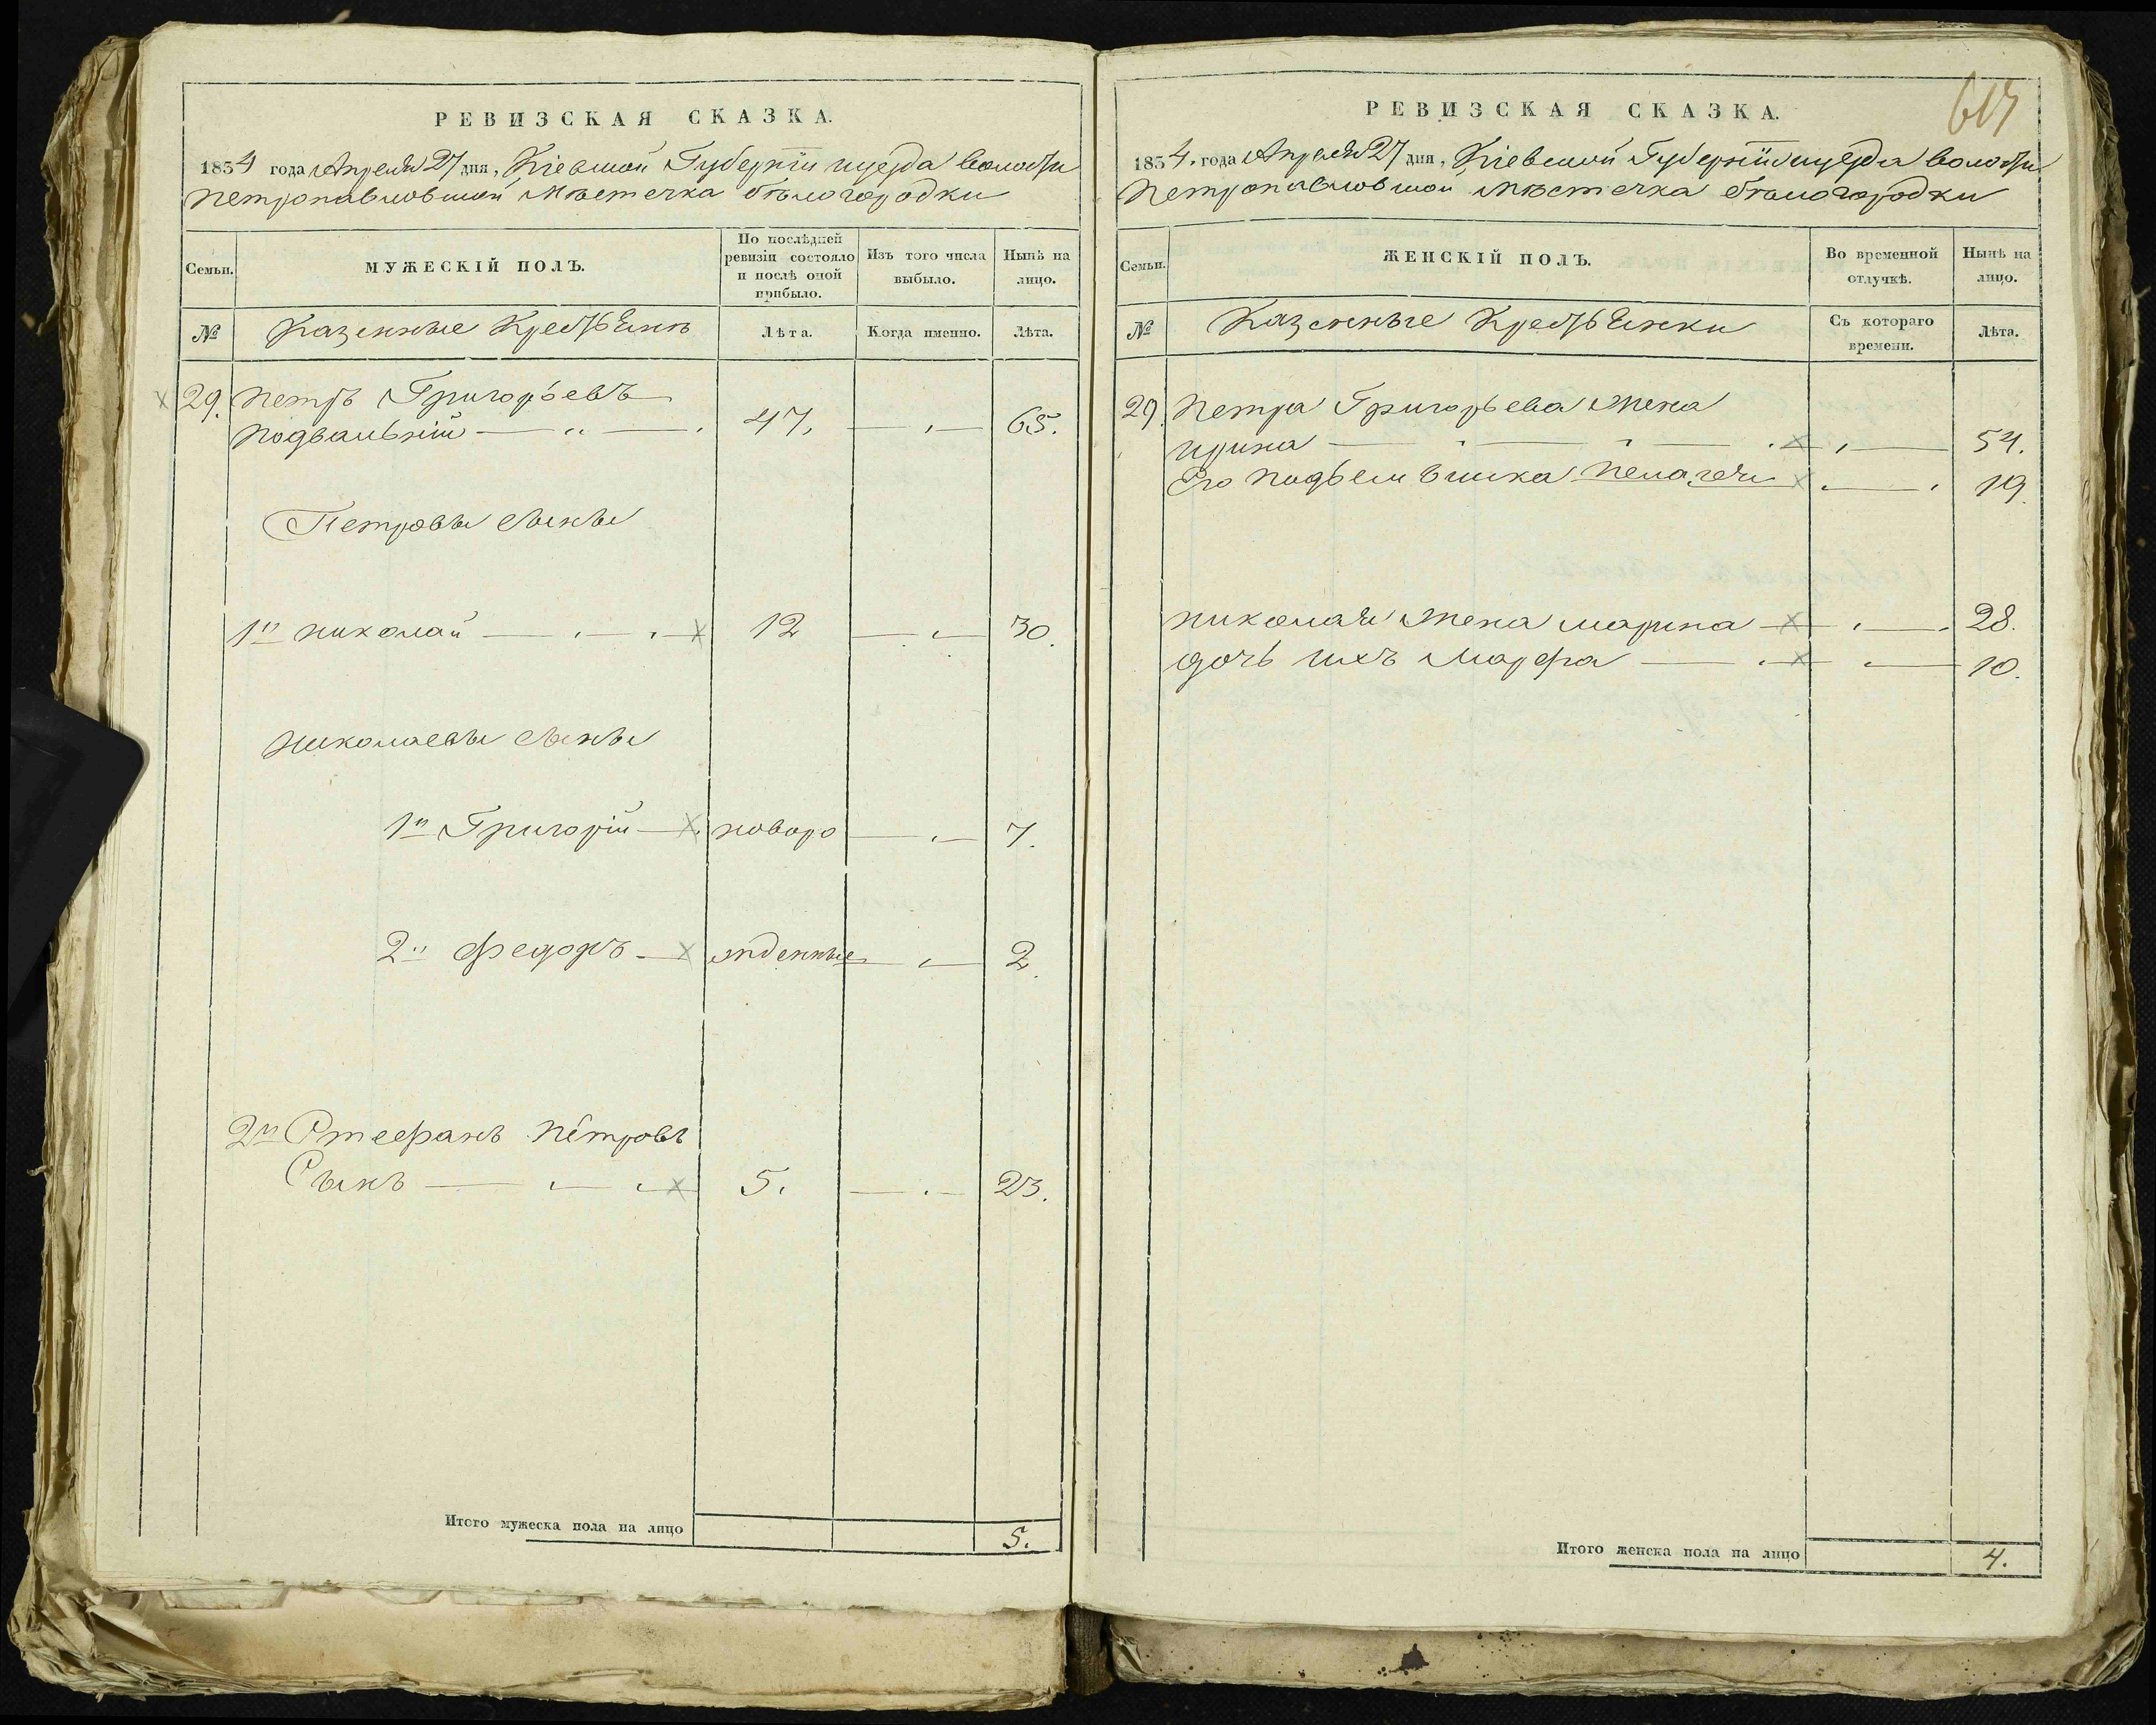 РЕВИЗСКАЯ СКАЗКА.
1854 года Апреля 27 дня, Кіевской Губерніи и уезда волости
Петропавловской Мѣстечка бѣлогородки
Семьи.
МУЖЕСКІЙ ПОЛЪ.
По послѣдней ревизіи состояло и послѣ оной прибыло.
Изъ того числа выбыло.
Нынѣ на лицо.
№
Казенные Крестьяне
Лѣта.
Когда именно.
Лѣта.
29. Петръ Григорьевъ
Подвальній 47. 65.
Петровы сыны
1й николай 12 30.
николаевы сыны
1й Григорій новоро 7.
2й Федоръ жденные 2.
2й Стефанъ Петровъ
Сынъ 5. 23.
Итого мужеска пола на лицо 5.
615
РЕВИЗСКАЯ СКАЗКА.
1854. года Апреля 27 дня, Кіевской Губерніи и уезда волости
Петропавловской Мѣстечка бѣлогородки
Семьи.
ЖЕНСКІЙ ПОЛЪ.
Во временной отлучкѣ.
Нынѣ на лицо.
№
Казенные Крестьянки
Съ котораго времени.
Лѣта.
29. Петра Григорьева Жена
ирина 54.
Его Пелагея 19.
николая Жена марина 28.
дочь ихъ Марфа 10.
Итого женска пола на лицо 4.